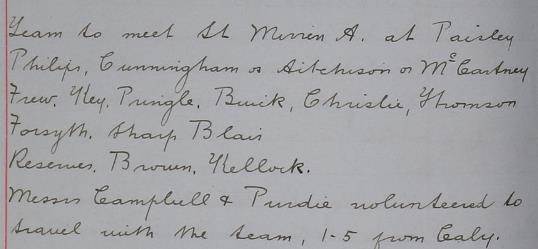 Team to meet St Mirren A. at Paisley
Philip, Cunningham or Aitchison or McCartney
Frew, Key, Pringle, Buick, Christie, Thomson
Forsyth, Sharp Blair
Reserves, Brown, Kellock.
Messrs Campbell & Purdie volunteered to
travel with the team, 1-5 from Caly.